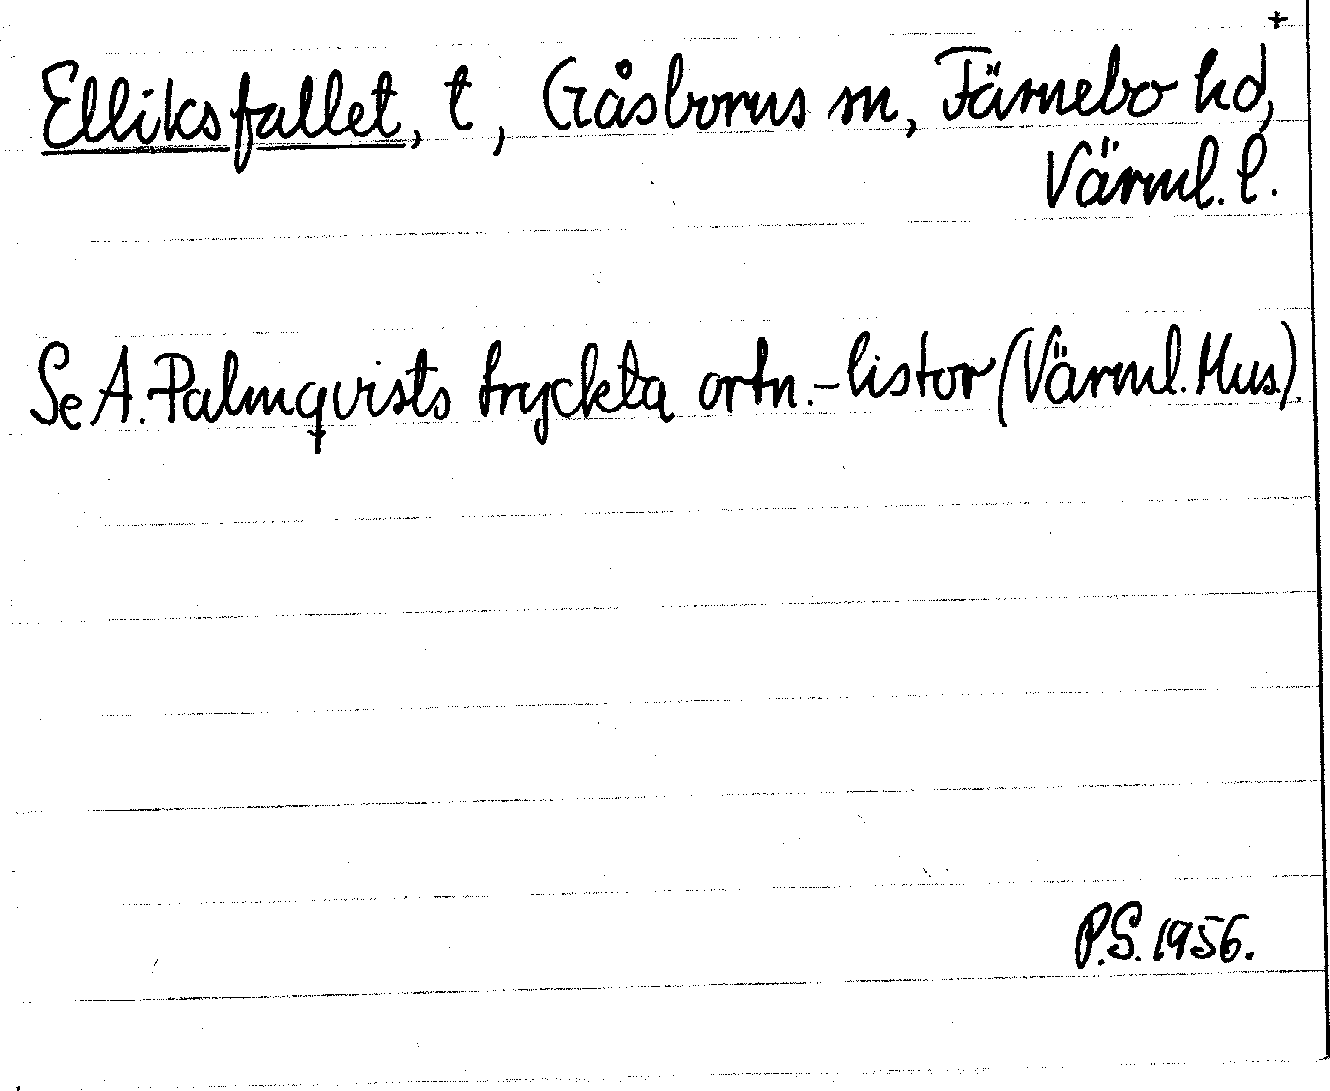 +
Elliksfallet, t, Gåsborns sn, Färnebo hd,
Värml. l.
Se A. Palmqvists tryckta ortn.-listor (Värml. Mus.).
P.S. 1956.